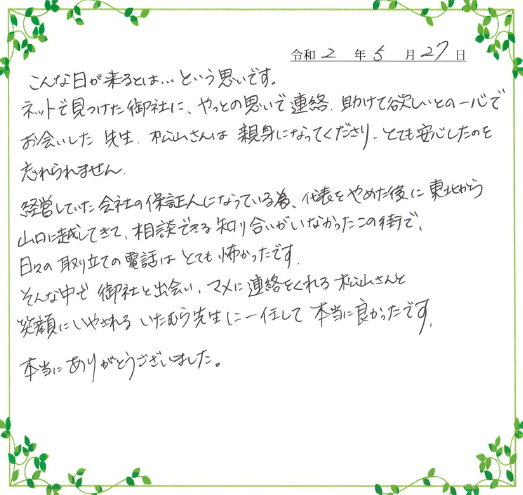 令和 2 年 5 月 27 日
こんな日が来るとは…という思いです。
ネットで見つけた御社に、やっとの思いで連絡、助けて欲しいとの一心で
お会いした先生、松山さんは親身になってくださり、とても安心したのを
忘れられません。
経営していた会社の保証人になっている為、代表をやめた後に東北から
山口に越してきて、相談できる知り合いがいなかったこの街で、
日々の取り立ての電話はとても怖かったです。
そんな中で御社と出会い、マメに連絡をくれる松山さんと
笑顔にいやされるいたむら先生に一任して本当に良かったです。
本当にありがとうございました。